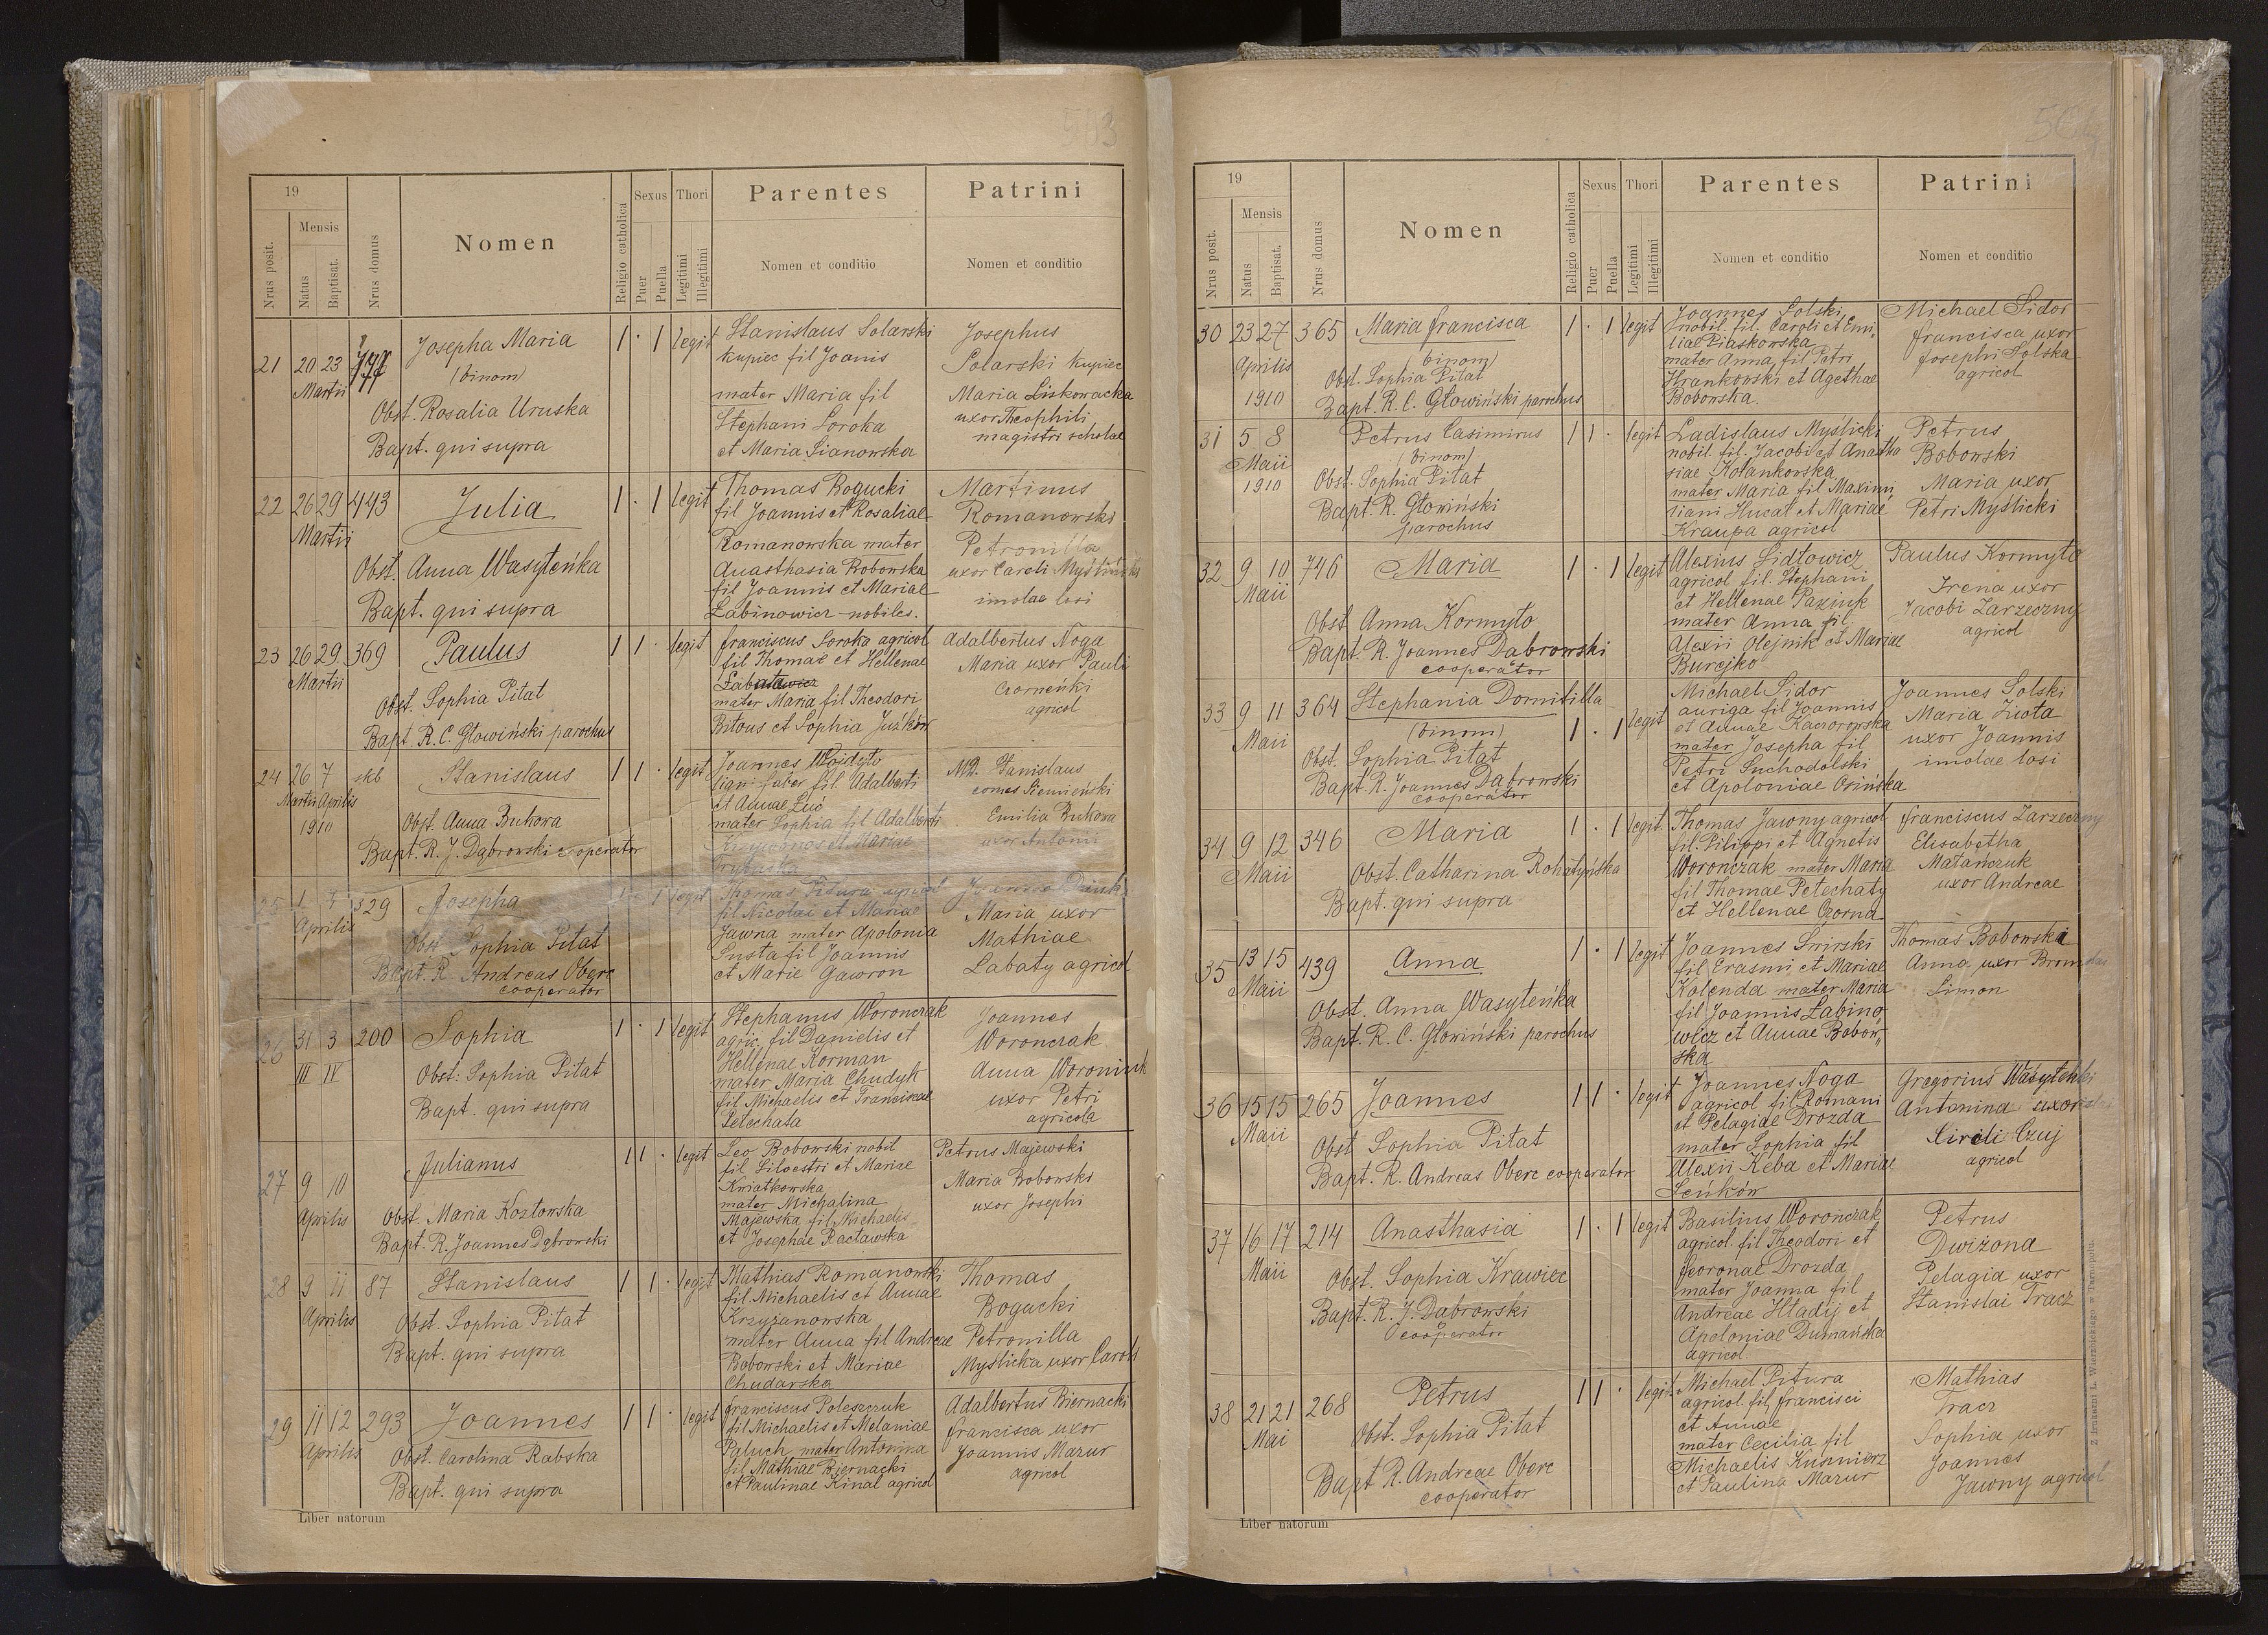 503
19
Mensis
Nrus posit.
Natus
Baptisat.
Nrus domus
Nomen
Religio catholica
Sexus
Puer
Puella
Thori
Legitimi
Illegitimi
Parentes
Nomen et conditio
Patrini
Nomen et conditio
21 20 23 Martii
Josepha Maria
(binom)
Obst. Rosalia Uruska
Bapt. qui supra
1 · 1 legit
Stanislaus Solarski
kupiec fil Joanis
mater Maria fil
Stephani Soroka
et Maria Sianowska
Josephus
Solarski kupiec
Maria Liskowacka
uxor Theophili
magistri scholae
22 26 29 443
Martii
Julia
Obst. Anna Wasyteńka
Bapt. qui supra
1 · 1 legit
Thomas Bogucki
fil Joannis et Rosaliae
Romanowska mater
Anasthasia Bobowska
fil Joannis et Mariae
Łabinowicz nobiles.
Martinus
Romanowski
Petronilla
uxor Caroli
imolae losi
23 26 29 369
Martii
Paulus
Obst. Sophia Pitat
Bapt. R. C. Głowiński parochus
1 1 · legit
Franciscus Soroka agricol
fil Thomae et Hellenae
mater Maria fil Theodori
Bitous et Sophia Juśków
Adalbertus Noga
Maria uxor Pauli
Czorneńki
agricol
24 26 7 skb
Martii Aprilis
1910
Stanislaus
Obst. Anna Bukowa
Bapt. R. J. Dąbrowski cooperator
1 1 · legit
Joannes Wojdyto
lign faber fil. Adalberti
et Annae Łuć
mater Sophia fil Adalberti
et Mariae
Stanislaus
comes Siemieński
Emilia Bukowa
uxor Antonii
25 1 7 329
Aprilis
Josepha
Obst. Sophia Pitat
Bapt. R. Andreas Oberc
cooperator
1 · 1 legit
Thomas Pitura agricol
fil Nicolai et Mariae
Jawna mater Apolonia
Susta fil Joannis
et Marie Gaworon
Maria uxor
Mathiae
Labaty agricol
26 31 3 200
III IV
Sophia
Obst: Sophia Pitat
Bapt. qui supra
1 · 1 legit
Stephanus Woronczak
agric. fil Danielis et
Hellenae Korman
mater Maria Chudyk
fil Michaelis et Franciscae
Petechata
Joannes
Woronczak
Anna Woroniuk
uxor Petri
agricola
27 9 10
Aprilis
Julianus
Obst. Maria Kozłowska
Bapt. R. Joannes Dąbrowski
1 1 · legit
Leo Bobowski nobil
fil Silvestri et Mariae
Kwiatkowska
mater Michalina
Majewska fil Michaelis
et Josephae Racławska
Petrus Majewski
Maria Bobowski
uxor Josephi
28 9 11 87
Aprilis
Stanislaus
Obst. Sophia Pitat
Bapt. qui supra
1 1 · legit
Mathias Romanowski
fil Michaelis et Annae
Krzyżanowska
mater Anna fil Andreae
Bobowski et Mariae
Chudarska
Thomas
Bogucki
Petronilla
Myślicka uxor Caroli
29 11 12 293
Aprilis
Joannes
Obst. Carolina Rabska
Bapt. qui supra
1 1 · legit
Franciscus Poleszczuk
fil Michaelis et Melaniae
Paluch mater Antonina
fil Mathiae Biernacki
et Paulinae Kinal agricol
Adalbertus Biernacki
Francisca uxor
Joannis Mazur
agricol
Liber natorum
504
19
Mensis
Nrus posit.
Natus
Baptisat.
Nrus domus
Nomen
Religio catholica
Sexus
Puer
Puella
Thori
Legitimi
Illegitimi
Parentes
Nomen et conditio
Patrini
Nomen et conditio
30 23 27 365
Aprilis
1910
Maria Francisca
(binom)
Obst. Sophia Pitat
Bapt. R. C. Głowiński parochus
1 · 1 legit
Joannes Solski
nobil. fil. Caroli et Emi-
liae Piaskowska
mater Anna fil Petri
Hrankowski et Agathae
Bobowska.
Michael Sidor
Francisca uxor
Josephi Solska
agricol
31 5 8
Maii
1910
Petrus Casimirus
(binom)
Obst. Sophia Pitat
Bapt. R. Głowiński
parochus
1 1 · legit
Ladislaus Myślicki
nobil. fil. Jacobi et Anastha
siae Kolankowska
mater Maria fil Maximi
liani Hucał et Mariae
Kraupa agricol
Petrus
Bobowski
Maria uxor
Petri Myślicki
32 9 10 746
Maii
Maria
Obst Anna Kormyto
Bapt. R. Joannes Dabrowski
cooperator
1 · 1 legit
Alexius Sidłowicz
agricol fil. Stephani
et Hellenae Paziuk
mater Anna fil
Alexii Olejnik et Mariae
Burejko
Paulus Kormyto
Irena uxor
Jacobi Zarzeczny
agricol
33 9 11 364
Maii
Stephania Domitilla
(binom)
Obst. Sophia Pitat
Bapt. R. Joannes Dąbrowski
cooperator
1 · 1 legit
Michael Sidor
auriga fil Joannis
et Annae Kaczorowska
mater Josepha fil
Petri Suchodolski
et Apoloniae Osińska
Joannes Solski
Maria Zwota
uxor Joannis
imolae losi
34 9 12 346
Maii
Maria
Obst. Catharina Rohatyńska
Bapt. qui supra
1 · 1 legit.
Thomas Jawny agricol
fil. Pilippi et Agnetis
Woronczak mater Maria
fil Thomae Petechaty
et Hellenae Czorna
Franciscus Zarzeczny
Elisabetha
Matanczuk
uxor Andreae
35 13 15 439
Maii
Anna
Obst. Anna Wasyteńka
Bapt. R. C. Głowiński parochus
1 · 1 legit
Joannes Swirski
fil Erasmi et Mariae
Kolenda mater Maria
fil Joannis Łabino-
wicz et Annae Bobow„
ska
Thomas Bobowski
Anna uxor
Simon
36 15 15 265
Maii
Joannes
Obst Sophia Pitat
Bapt. R. Andreas Oberc cooperator
1 1 · legit
Joannes Noga
agricol fil Romani
et Pelagiae Drozda
mater Sophia fil
Alexii Keba et Mariae
Seńków
Gregorius Wasyteńki
Antonina uxor
Cirili Czuj
agricol
37 16 17 214
Maii
Anasthasia
Obst. Sophia Krawiec
Bapt. R. J. Dabrowski
cooperator
1 · 1 legit
Basilius Woronczak
agricol. fil Theodori et
Feoronae Drozda
mater Joanna fil
Andreae Hładij et
Apoloniae Dumańska
agricol.
Petrus
Dwiżona
Pelagia uxor
Stanislai Tracz
38 21 21 268
Mai
Petrus
Obst. Sophia Pitat
Bapt R. Andreae Oberc
cooperator
1 1 · legit
Michael Pitura
agricol. fil Francisci
et Annae
mater Cecilia fil
Michaelis Kusnierz
et Paulina Mazur
Mathias
Tracz
Sophia uxor
Joannes
Jawny agricol
Liber natorum
Z drukarni L. Wierzbickiego w Tarnopolu.